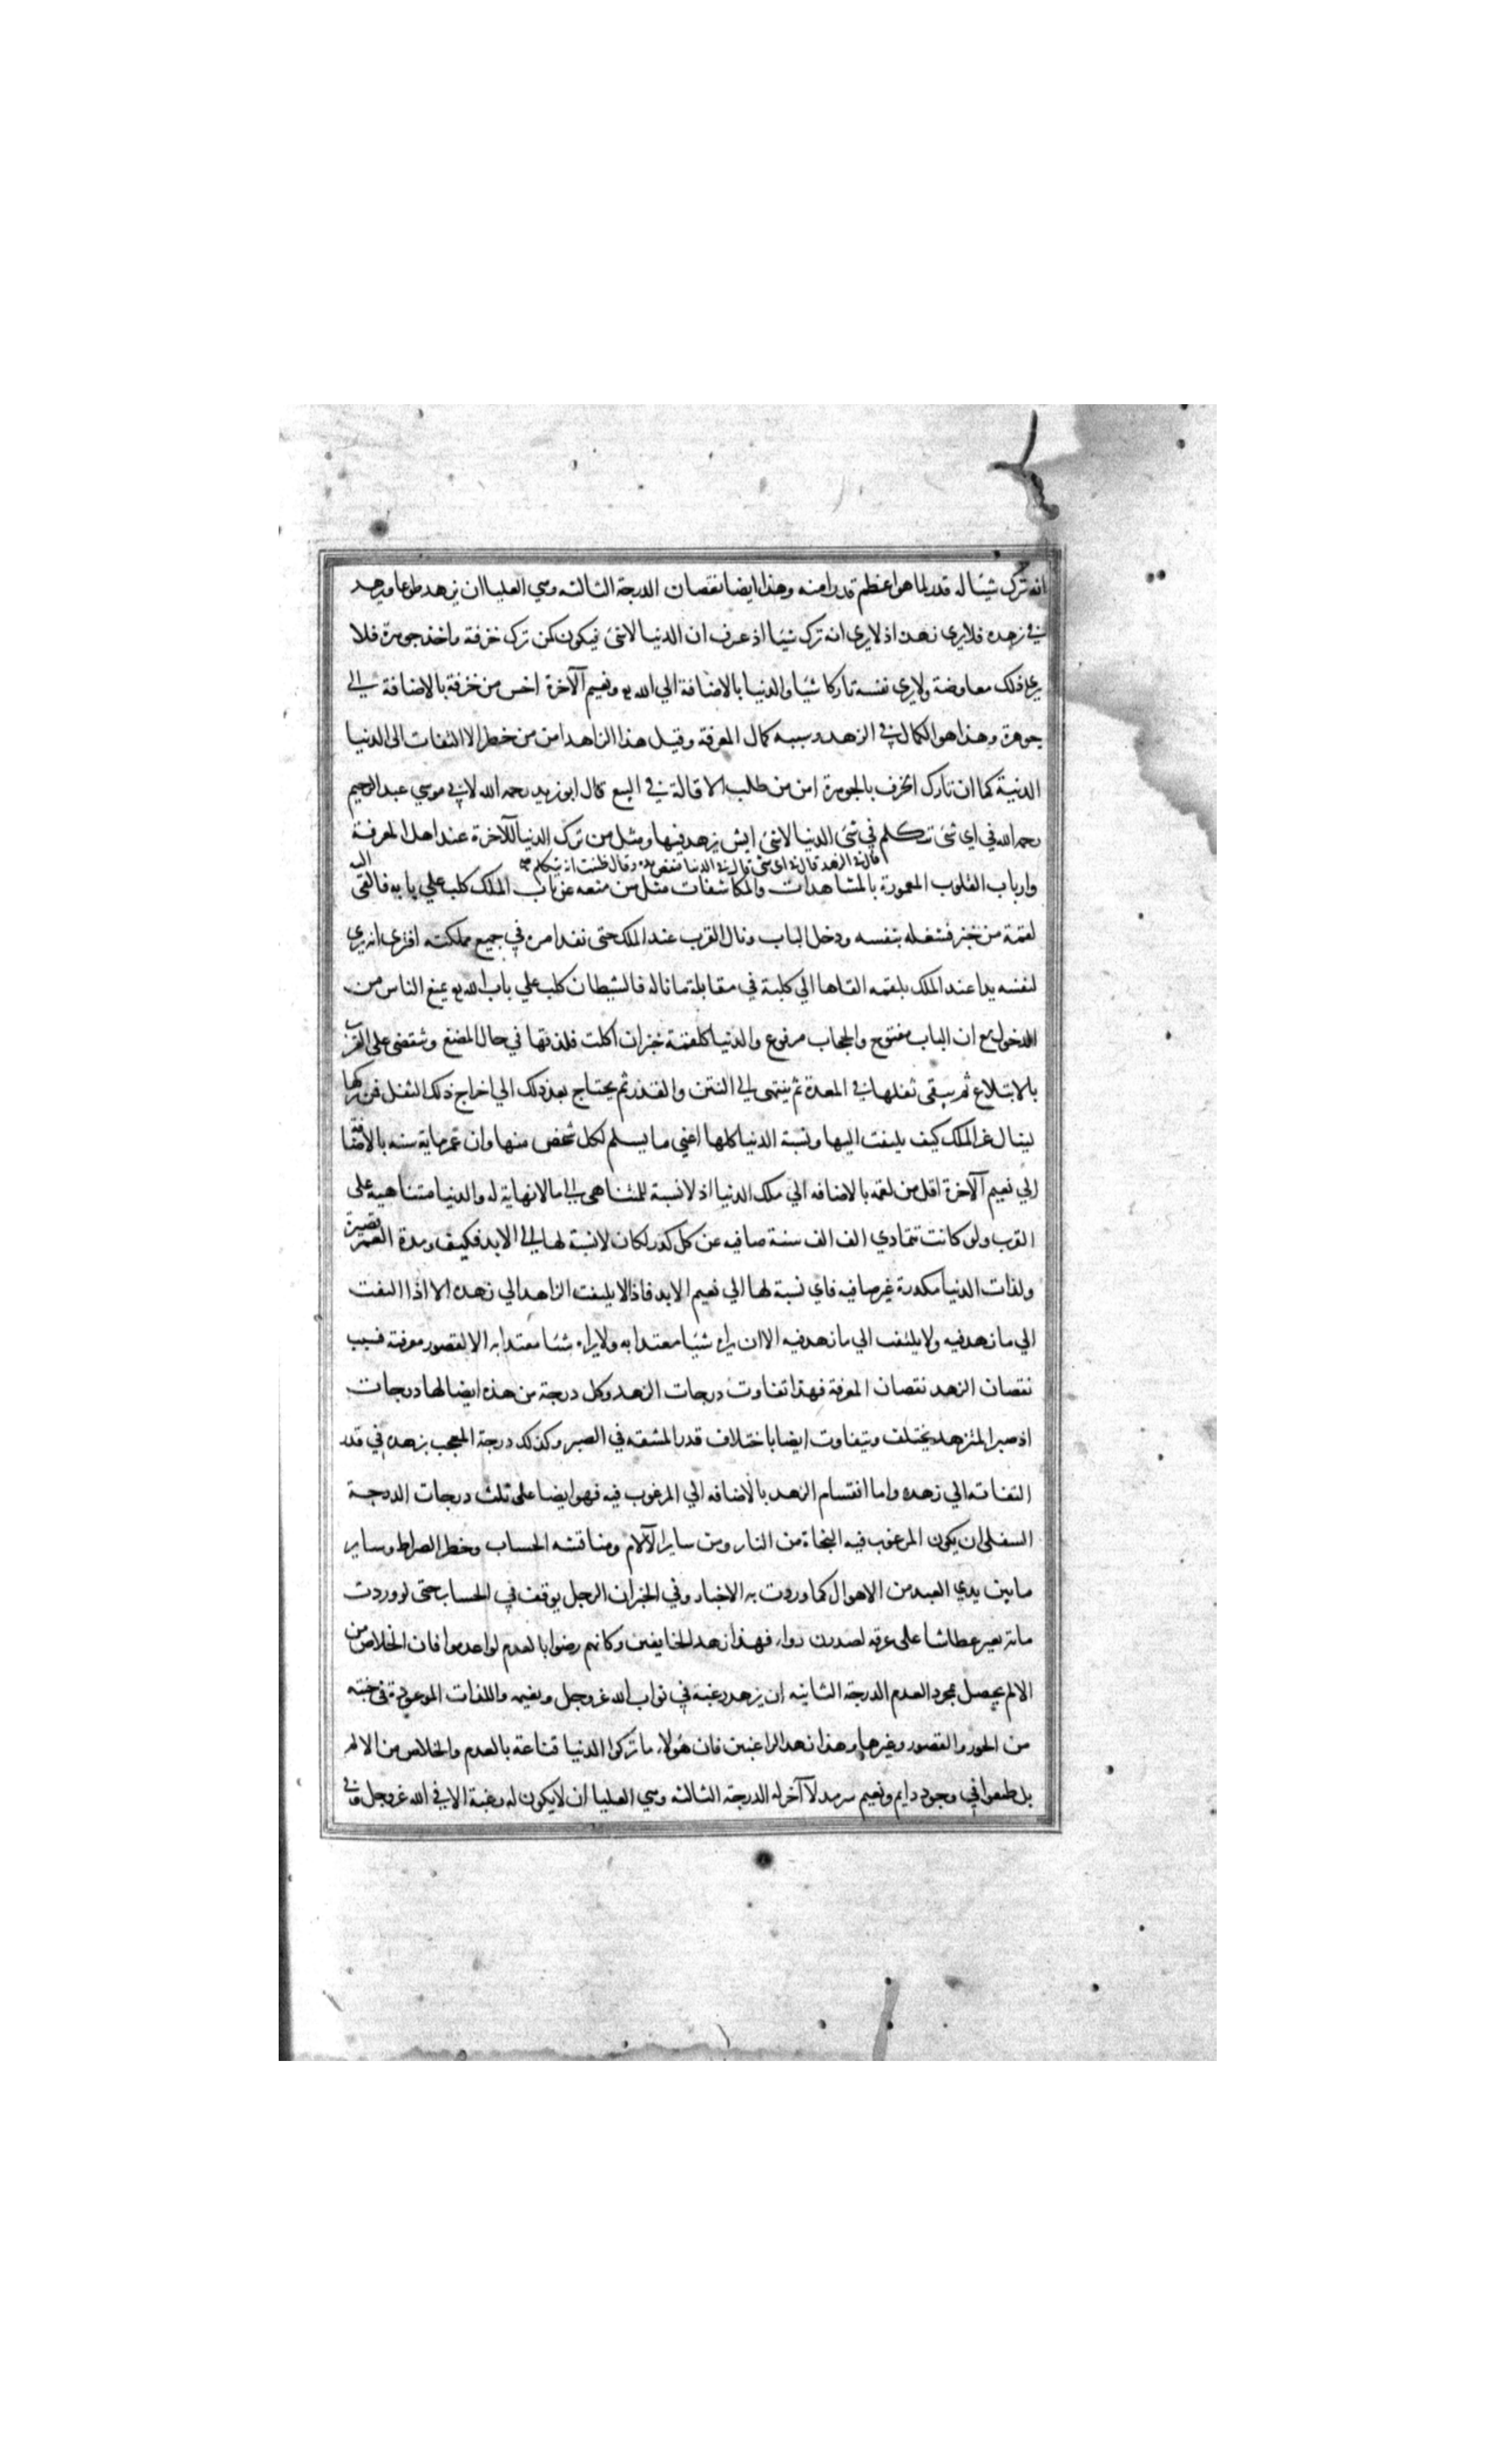 انه ترك شيئا له قدر لما هو اعظم قدرا منه وهذا ايضا نقصان الدرجة الثالثه وهي العليا ان يزهد طوعا ويزهد
في زهده فلا يري زهده اذ لا يري انه ترك شيئا اذ عرف ان الدنيا لاشئ فيكون كمن ترك خزفة واخذ جوهرة فلا
يري ذلك معاوضة ولا يري نفسه تاركا شيئا والدنيا بالاضافة الي الله تع ونعيم الآخرة اخس من خزفة بالاضافة الى
جوهرة وهذا هو الكمال في الزهد وسببه كمال المعرفة وقيل هذا الزاهد امن من خطر الالتفات الى الدنيا
الدنية كما ان تارك الخزف بالجوهرة امن من طلب الاقالة في البيع قال ابو زيد رحمه الله لابي موسي عبد الرحيم
رحمه الله في اي شئ تتكلم في شئ الدنيا لاشئ ايش يزهد فيها ومثل من ترك الدنيا للآخرة عند اهل المعرفة
قال في الزهد قال في اي شئ قال في الدنيا فنفض يده وقال ظننت انه يتكلم
وارباب القلوب المعمورة بالمشاهدات والمكاشفات مثل من منعه عن باب الملك كلب علي بابه فالقي اليه
لقمة من خبز فشغله بنفسه ودخل الباب ونال القرب عند الملك حتى نفذ امره في جميع مملكته افترى انه يري
لنفسه يدا عند الملك بلقمه القاها الي كلبة في مقابلة ما ناله فالشيطان كلب علي باب الله تع يمنع الناس من
الدخول مع ان الباب مفتوح والحجاب مرفوع والدنيا كلقمة خبز ان اكلت فلذتها في حال المضغ وتنقضى على القرب
بالابتلاع ثم يبقى ثفلها في المعدة ثم ينتهى الى النتن والقذر ثم يحتاج بعد ذلك الي اخراج ذلك الثفل فمن تركها
لينال عز الملك كيف يلتفت اليها ونسبة الدنيا كلها اعني ما يسلم لكل شخص منها وان عمر ماية سنه بالاضافة
الي نعيم الآخرة اقل من لقمه بالاضافه الي ملك الدنيا اذ لا نسبة للمتناهى الى ما لا نهاية له والدنيا متناهيه على
القرب ولو كانت تتمادي الف الف سنة صافيه عن كل كدر لكان لا نسبة لها الى الابد فكيف ومدة العمر قصيرة
ولذات الدنيا مكدرة غير صافيه فاي نسبة لها الي نعيم الابد فاذا لا يلتفت الزاهد الي زهده الا اذا التفت
الي ما زهد فيه ولا يلتفت الي ما زهد فيه الا ان يراه شيئا معتدا به ولا يراه شيئا معتدا به الا لقصور معرفته فسبب
نقصان الزهد نقصان المعرفة فهذا تفاوت درجات الزهد وكل درجة من هذه ايضا لها درجات
اذ صبر المتزهد يختلف ويتفاوت ايضا باختلاف قدر المشقه في الصبر وكذلك درجة المعجب بزهده في قدر
التفاته الي زهده واما انقسام الزهد بالاضافه الي المرغوب فيه فهو ايضا على ثلث درجات الدرجة
السفلى ان يكون المرغوب فيه النجاة من النار ومن ساير الآلام ومناقشه الحساب وخطر الصراط وساير
ما بين يدي العبد من الاهوال كما وردت به الاخبار وفي الخبر ان الرجل يوقف في الحساب حتى لو وردت
ماية بعير عطاشا على عرقه لصدرت رواء فهذا زهد الخايفين وكانهم رضوا بالعدم لو اعدموا فان الخلاص من
الالم يحصل بمجرد العدم الدرجة الثانيه ان يزهد رغبة في ثواب الله عز وجل ونعيمه واللذات الموعودة في جنته
من الحور والقصور وغيرها وهذا زهد الراغبين فان هؤلاء ما تركوا الدنيا قناعة بالعدم والخلاص من الالم
بل طمعوا في وجود دايم ونعيم سرمد لا آخر له الدرجة الثالثه وهي العليا ان لا يكون له رغبة الا في الله عز وجل وفي